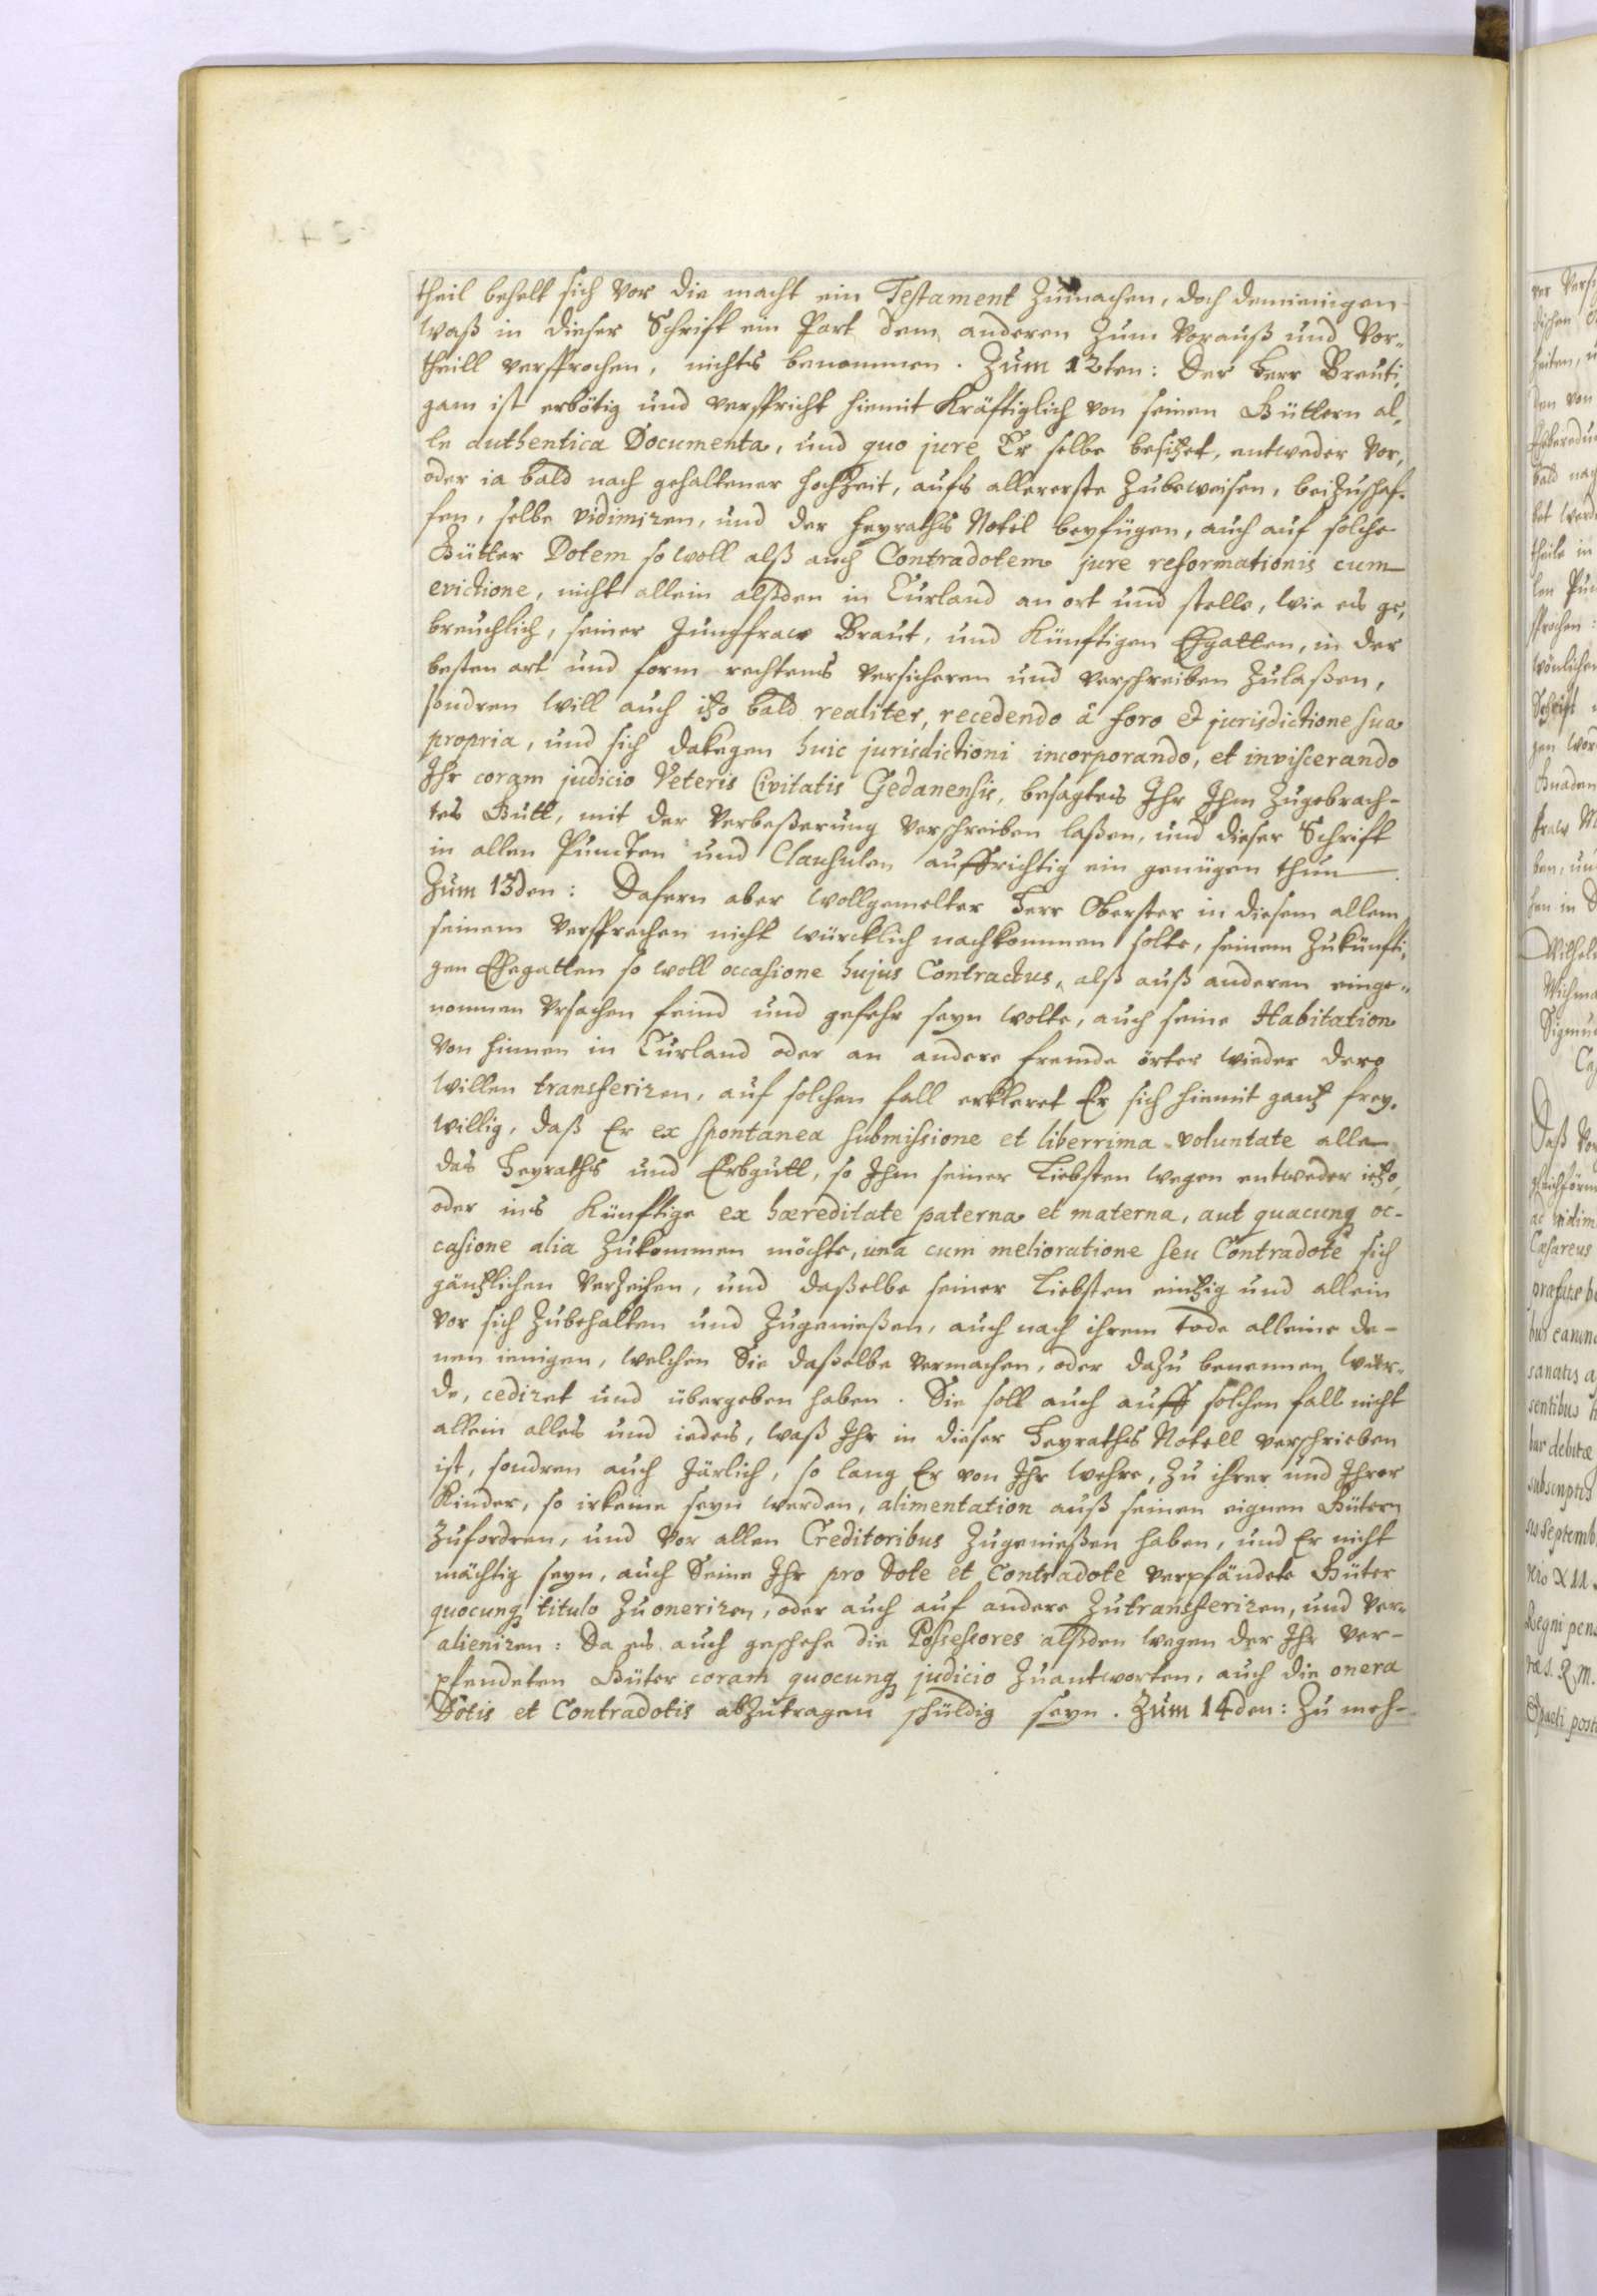 theil behelt sich vor die macht ein Testament Zumachen, doch demienigen
waß in dieser Schrift ein Part dem anderen Zum Vorauß und Vor-
theill versprochen, nichts benommen. Zum 12ten: Der Herr Breuti,
gam ist erbötig und verspricht hiemit Kräftiglich von seinen Güttern al,
le authentica Documenta, und quo jure Er selbe besitzet, entweder vor,
oder ia bald nach gehaltener Hochzeit, aufs allererste Zubeweisen, beiZuschaf-
fen, selbe vidimiren, und der Heyraths Notel beyfügen, auch auf solche
Gütter Dotem so woll alß auch Contradotem jure reformationis cum
evictione, nicht allein alßden in Curland an ort und stelle, wie es ge,
breuchlich, seiner Jungfraw Braut, und Künftigen Ehgatten, in der
besten art und form rechtens versicheren und verschreiben Zulaßen,
sondren will auch itzo bald realiter, recedendo à foro et jurisdictione sua
propria, und sich dakegen huic jurisdictioni incorporando, et inviscerando
Ihr coram judicio Veteris Civitatis Gedanensis, besagtes Ihr Ihm Zugebrach-
tes Gutt, mit der Verbeßerung verschreiben laßen, und dieser Schrift
in allen Puncten und Clausulen auffrichtig ein genügen thun.
Zum 13den: Dafern aber wollgemelter Herr Oberster in diesem allem
seinem versprechen nicht würcklich nachkommen solte, seinem Zukünfti,
gen Ehegatten so woll occasione hujus Contractus, alß auß anderen einge-
nommen Ursachen feind und gefehr seyn wolte, auch seine Habitation
von hinnen in Curland oder an andere fremde örter wieder dero
willen transferiren, auf solchen fall erkleret Er sich hiemit gantz frey,
willig, daß Er ex spontanea submissione et liberrima voluntate alle
das Heyraths und Erbgutt, so Ihm seiner Liebsten wegen entweder itzo,
oder ins Künftige ex hæreditate paterna et materna, aut quacunq oc-
casione alia Zukommen möchte, una cum melioratione seu Contradote sich
gäntzlichen verzeihen, und daßelbe seiner Liebsten eintzig und allein
vor sich Zubehalten und Zugenießen, auch nach ihrem tode alleine de-
nen ienigen, welchen Sie daßelbe vermachen, oder dazu benennen wür-
de, cediret und übergeben haben. Sie soll auch auff solchen fall nicht
allein alles und iedes, waß Ihr in dieser Heyraths Notell verschrieben
ist, sondren auch Järlich, so lang Er von Ihr wehre, Zu ihrer und Ihrer
Kinder, so irkeine seyn werden, alimentation auß seinen eignen Gütern
Zufordren, und vor allen Creditoribus Zugenießen haben, und Er nicht
mächtig seyn, auch Seine Ihr pro Dote et Contradote verpfändete Güter
quocunq titulo Zuoneriren, oder auch auf andere Zutransferiren, und ver-
alieniren: Da es auch geschehe die Possessores alßden wegen der Ihr ver-
pfendeten Güter coram quocunq judicio Zuantworten, auch die onera
Dotis et Contradotis abZutragen schuldig seyn. Zum 14den: Zu meh-